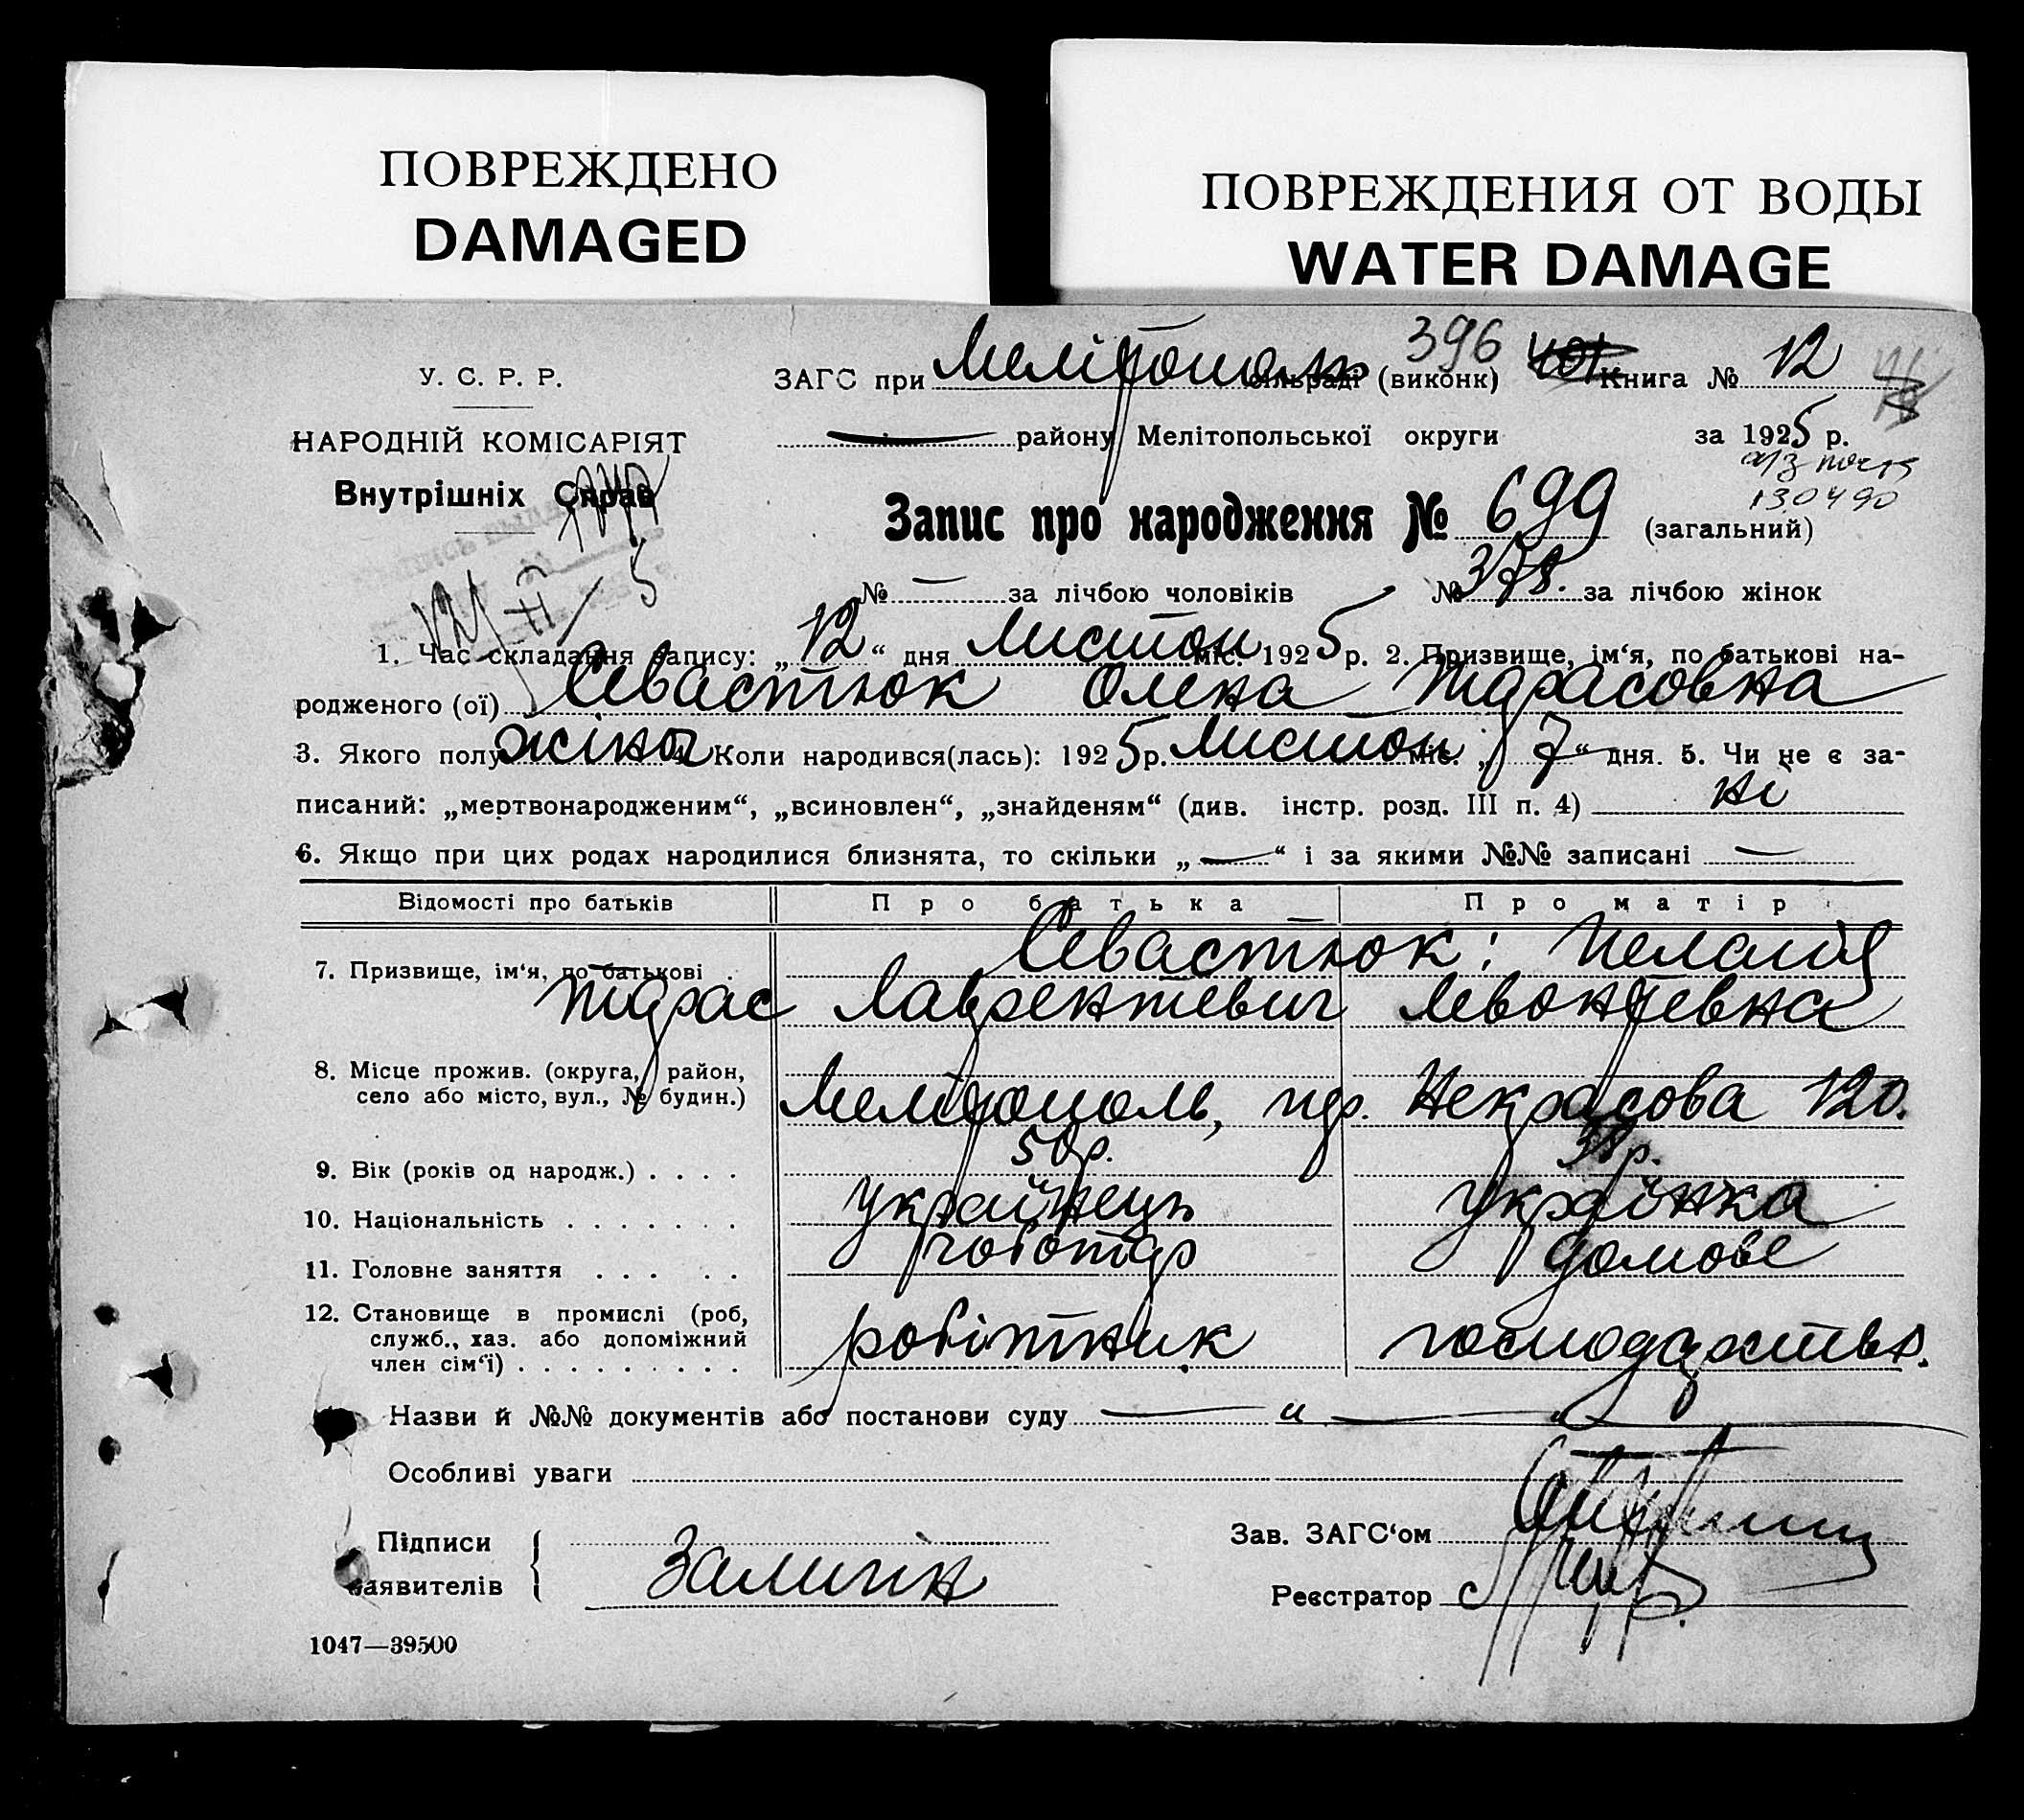 ПОВРЕЖДЕНО
DAMAGED
ПОВРЕЖДЕНИЯ ОТ ВОДЫ
WATER DAMAGE
У. С. Р. Р.
НАРОДНІЙ КОМІСАРІЯТ
Внутрішніх Справ
396
ЗАГС при Мелітополь сільраді (виконк) Книга № 12
району Мелітопольської округи за 1925 р.
130490
Запис про народження № 699 (загальний)
№ — за лічбою чоловіків № 378. за лічбою жінок
1. Час складання запису: „12“ дня Листоп міс. 1925 р. 2. Призвище, ім‘я, по батькові на-
родженого (ої) Севастюк Олена Тарасовна
3. Якого полу жіноч 4. Коли народився(лась): 1925 р. Листоп міс. „7“ дня. 5. Чи не є за-
писаний: „мертвонародженим“, „всиновлен“, „знайденям“ (див. інстр. розд. III п. 4) ні
6. Якщо при цих родах народилися близнята, то скільки „—“ і за якими №№ записані —
Відомості про батьків Про батька Про матір
7. Призвище, ім‘я, по батькові Севастюк: Пелагія
Тарас Лаврентевич Левонтевна
8. Місце прожив. (округа, район,
село або місто, вул., № будин.) Мелітополь, пр. Некрасова 120.
9. Вік (років од народж.) . . . . 50 р. 38 р.
10. Національність . . . . . . . українець українка
11. Головне заняття . . . . . чоботар домове
12. Становище в промислі (роб,
служб., хаз. або допоміжний
член сім‘ї) . . . . . . . . . робітник господарство.
Назви й №№ документів або постанови суду — „ —
Особливі уваги
Підписи
заявителів
Зав. ЗАГС‘ом
Реєстратор
1047—39500